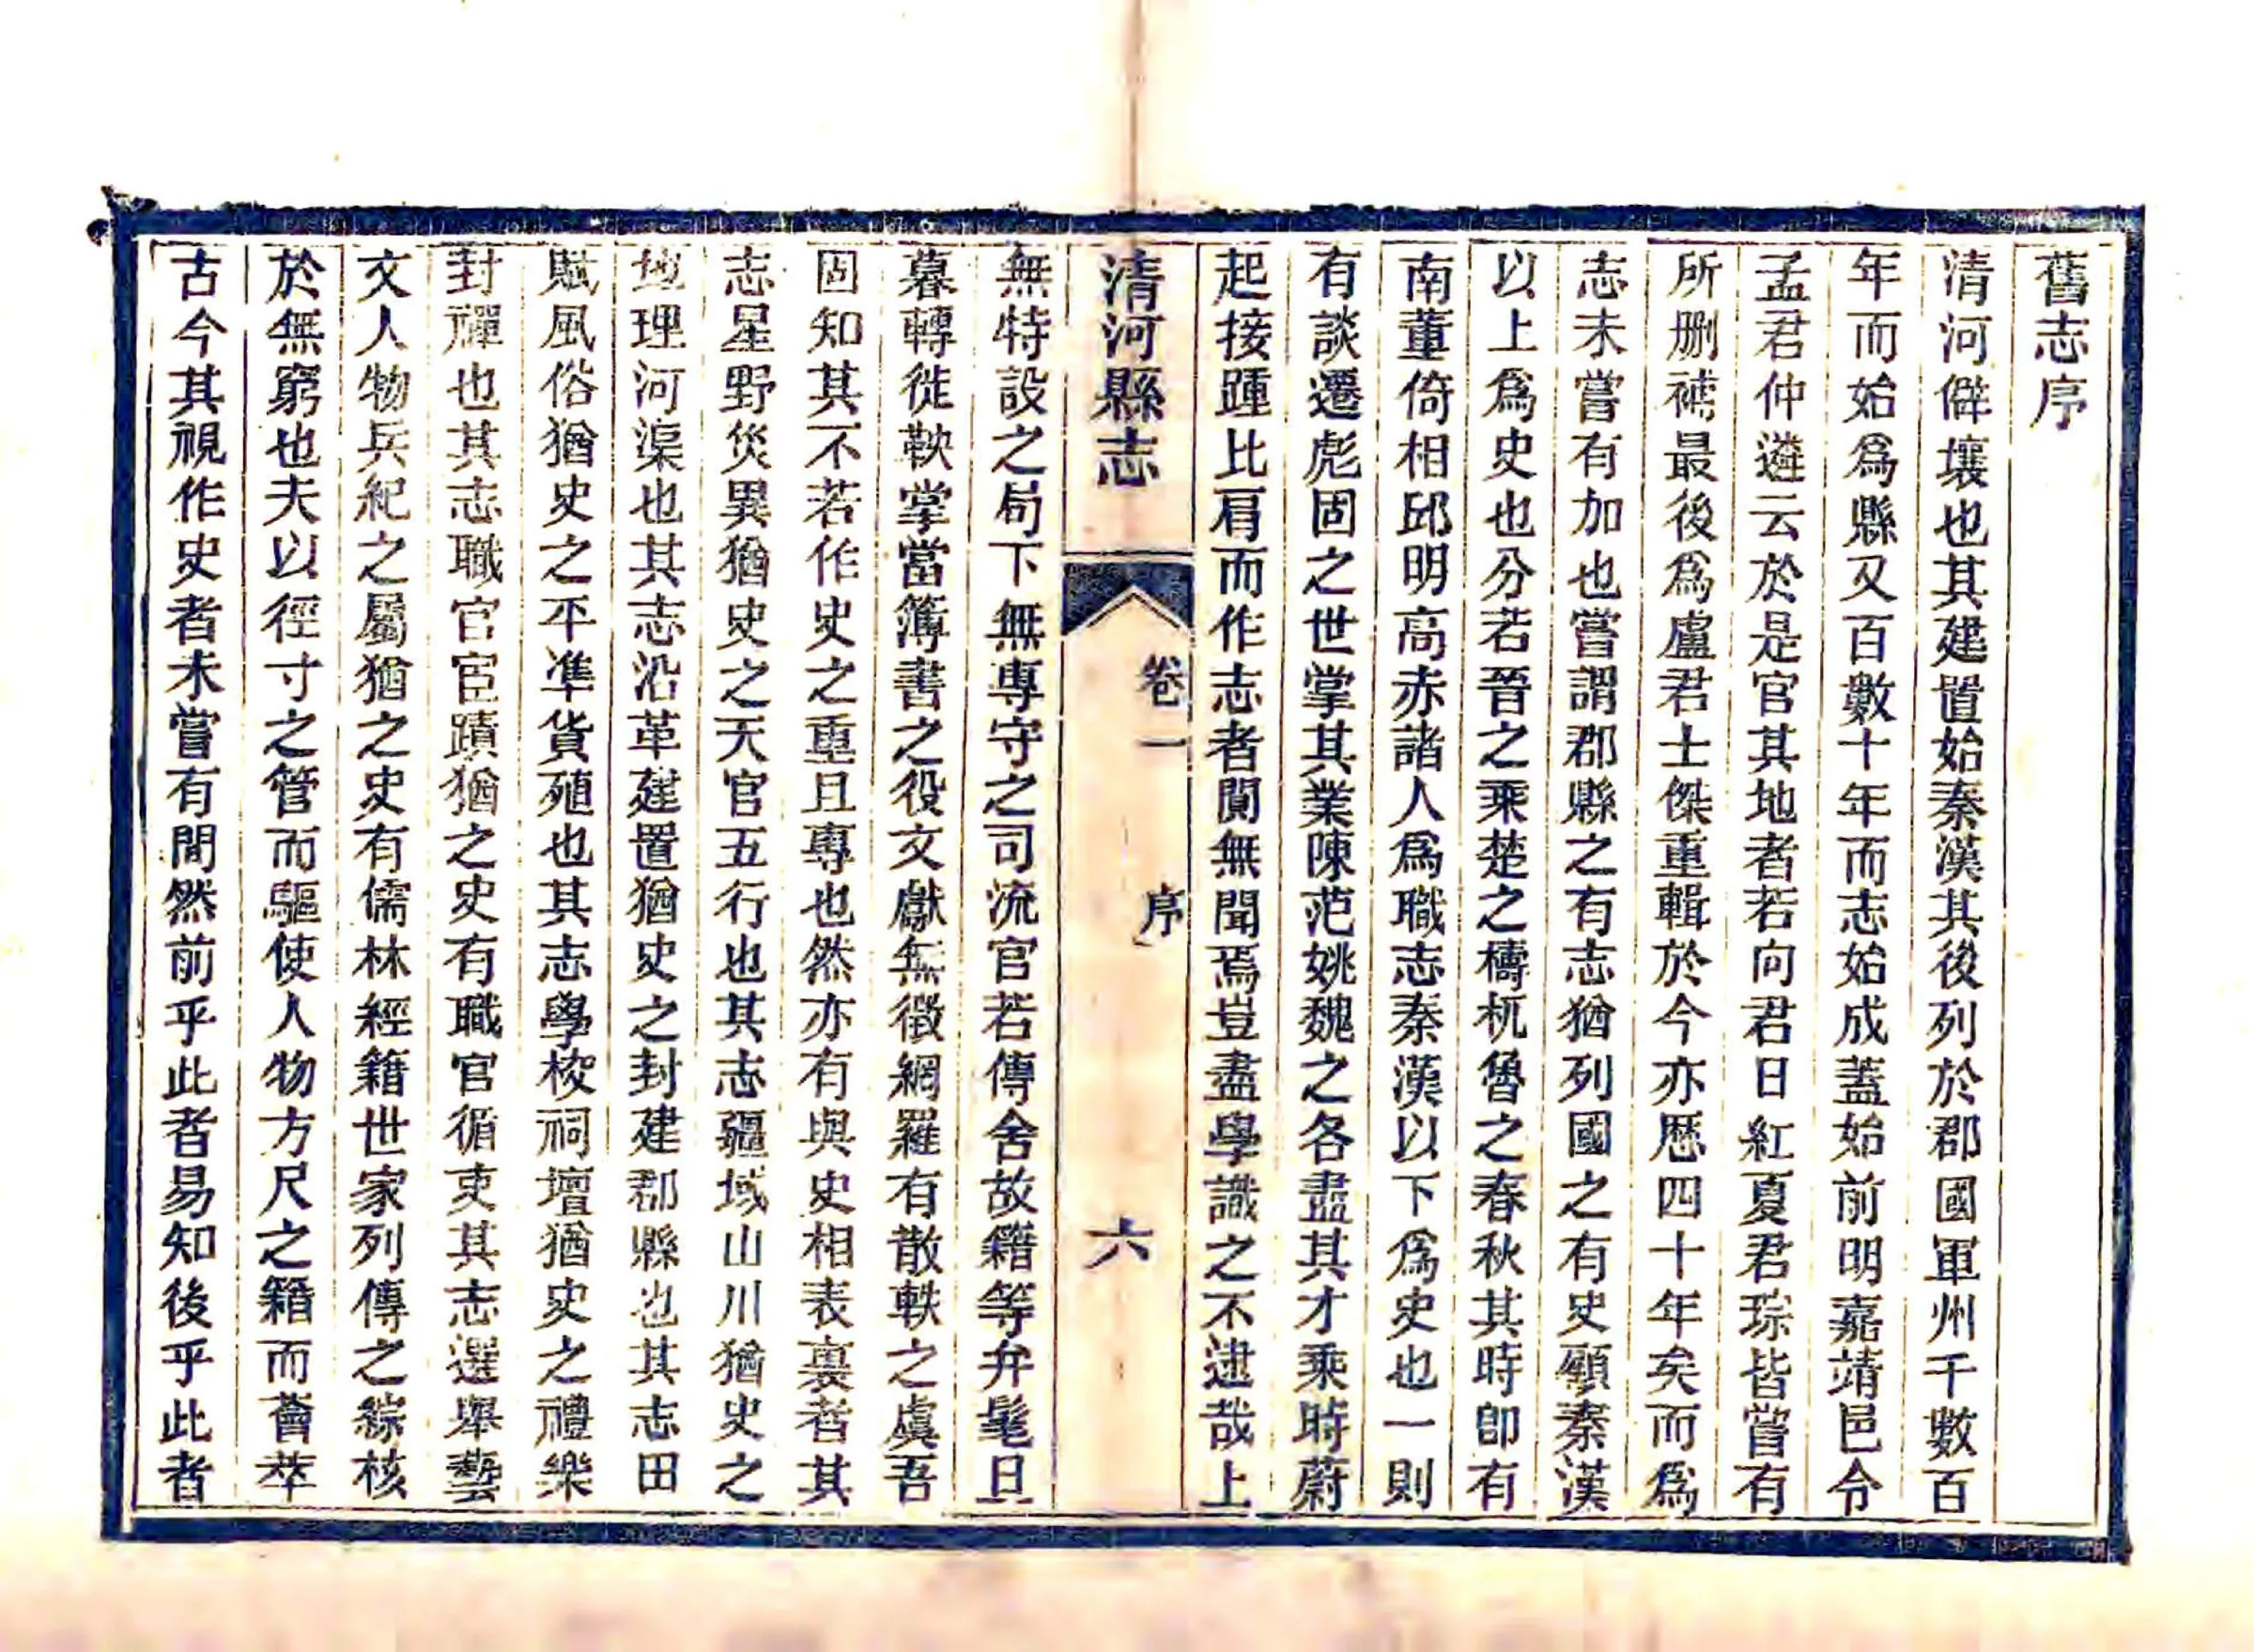 舊志序
清河僻壤也其建置始秦漢其後列於郡國軍州千數百
年而始爲縣又百數十年而志始成蓋始前明嘉靖邑令
孟君仲遴云於是官其地者若向君日紅夏君琮皆嘗有
所刪補最後爲盧君士傑重輯於今亦歷四十年矣而爲
志未嘗有加也嘗謂郡縣之有志猶列國之有史顧秦漢
以上爲史也分若晉之乘楚之檮杌魯之春秋其時卽有
南董倚相邱明高赤諸人爲職志秦漢以下爲史也一則
有談遷彪固之世掌其業陳范姚魏之各盡其才乘時蔚
起接踵比肩而作志者闃無聞焉豈盡學識之不逮哉上
清河縣志
卷一
序
六
無特設之局下無專守之司流官若傳舍故籍等弁髦旦
暮轉徙鞅掌當簿書之役文獻無徵網羅有散軼之虞吾
固知其不若作史之重且專也然亦有與史相表裏者其
志星野災異猶史之天官五行也其志疆域山川猶史之
地理河渠也其志沿革建置猶史之封建郡縣也其志田
賦風俗猶史之平準貨殖也其志學校祠壇猶史之禮樂
封禪也其志職官宦蹟猶之史有職官循吏其志選舉藝
文人物兵紀之屬猶之史有儒林經籍世家列傳之綜核
於無窮也夫以徑寸之管而驅使人物方尺之籍而薈萃
古今其視作史者未嘗有間然前乎此者易知後乎此者